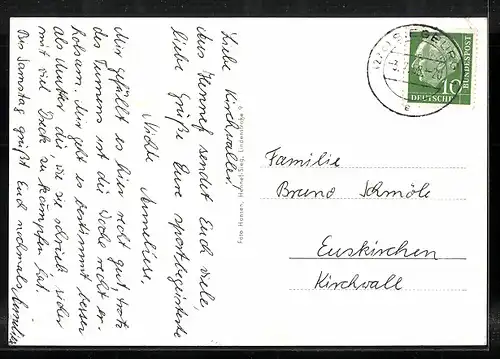 Liebe Kirchwaller!
Aus Hennef sendet Euch viele
liebe Grüße Eure sportbegeisterte
Nichte Anneliese.
Mir gefällt es hier recht gut, trotz
des Turnens ist die Woche recht er-
holsam. Mir geht es bestimmt besser
als Mutter die wie sie schrieb sicher
mit viel Dreck zu kämpfen hat.
Bis Samstag grüßt Euch nochmals Anneliese
Foto Hansen, Hennef/Sieg, Lindenstraße
SIEGBURG
DEUTSCHE
BUNDESPOST
10
Familie
Bruno Schmöle
Euskirchen
Kirchwall